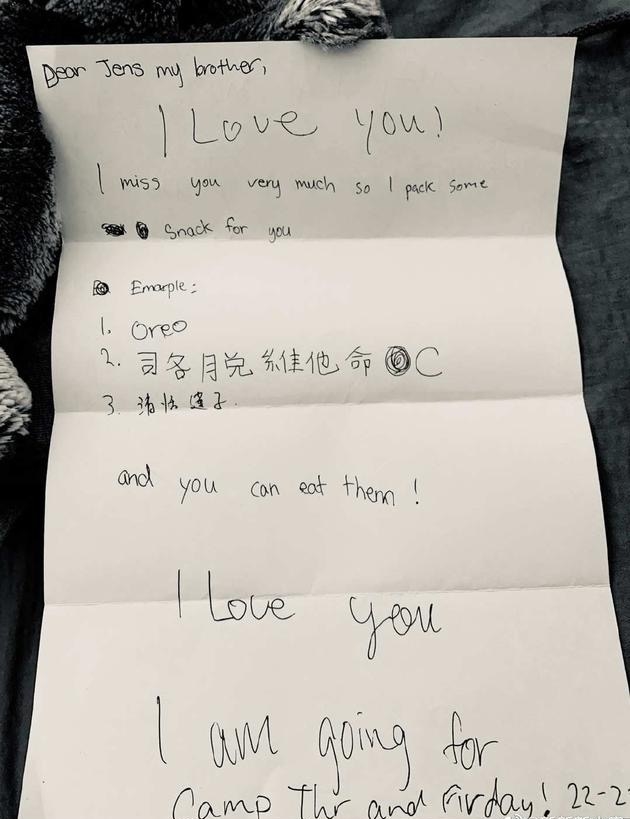 Dear Jens my brother,
I Love you!
I miss you very much so I pack some
Snack for you
Emarple:
1. Oreo
2. 司各月兑維他命 C
3. 子.
and you can eat them!
I Love you
I am going for
Camp Thr and Firday! 22-2